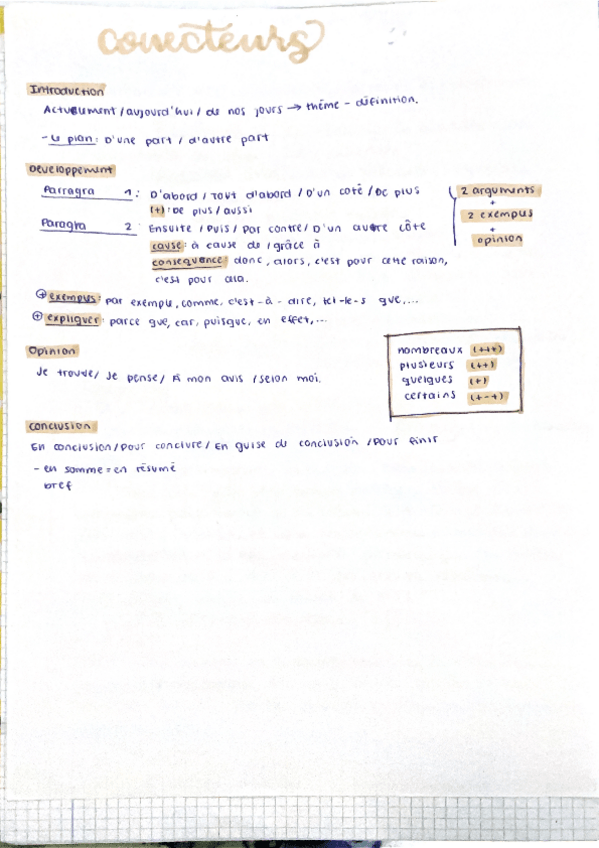 conecteurs
Introduction
Actuellement / aujourd'hui / de nos jours → thème - définition.
- Le plan: D'une part / d'autre part
Developpement
Parragra 1: D'abord / Tout d'abord / D'un coté / De plus
(+): De plus / aussi
Paragra 2: Ensuite / Puis / Par contre / D'un autre côte
cause: à cause de / grâce à
consequence: donc, alors, c'est pour cette raison,
c'est pour cela.
2 arguments
+
2 exemples
+
opinion
+ exemples: par exemple, comme, c'est-à-dire, tel-le-s que,...
+ expliquer: parce que, car, puisque, en effet,...
Opinion
Je trouve / Je pense / À mon avis / selon moi.
nombreaux (+++)
plusieurs (++)
quelques (+)
certains (+-+)
conclusion
En conclusion / Pour conclure / En guise de conclusion / Pour finir
- en somme = en résumé
bref